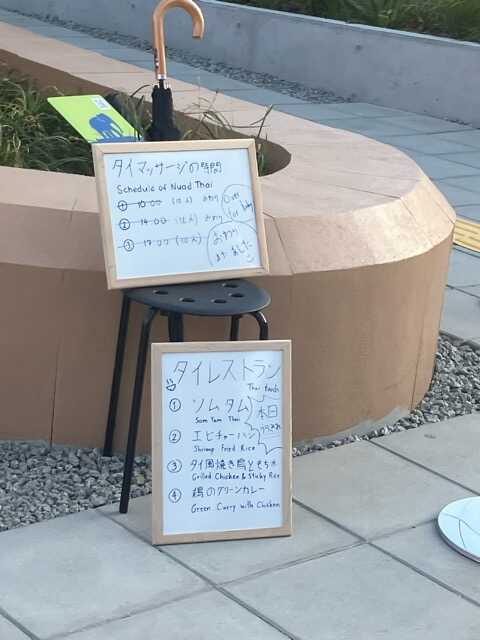 タイマッサージの時間
Schedule of Nuad Thai
① 10:00 (10人) みかり
② 14:00 (10人) みかり
③ 17:00 (10人)
Over
for today
おわり
ました
タイレストラン
Thai foods
① ソムタム
Som Tam Thai
本日
② エビチャーハン
Shrimp Fried Rice
③ タイ風焼き鳥ともち米
Grilled Chicken & Sticky Rice
④ 鶏のグリーンカレー
Green Curry with Chicken